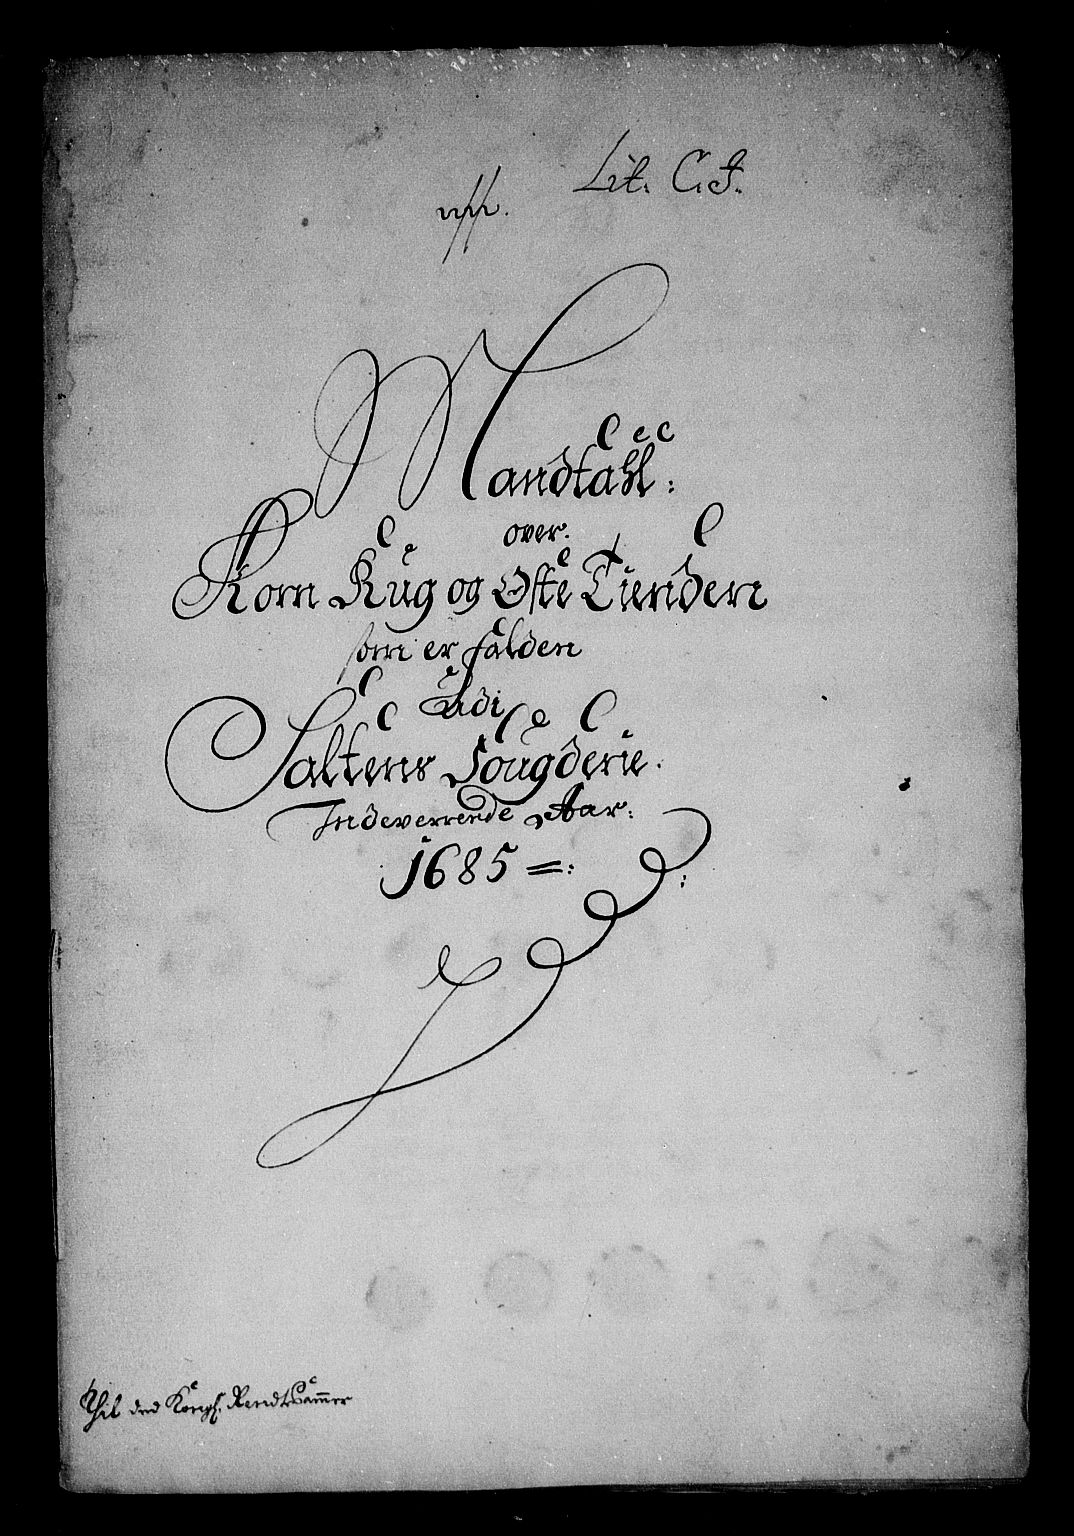 Lit. C. J.
Mandtahl:
over.
Korn Kug og Oste Tienden
som er falden
Udi
Saltens Fougderie.
Indeverrende Aar:
1685 =:
Thil ded Kongl. Rendtkammer